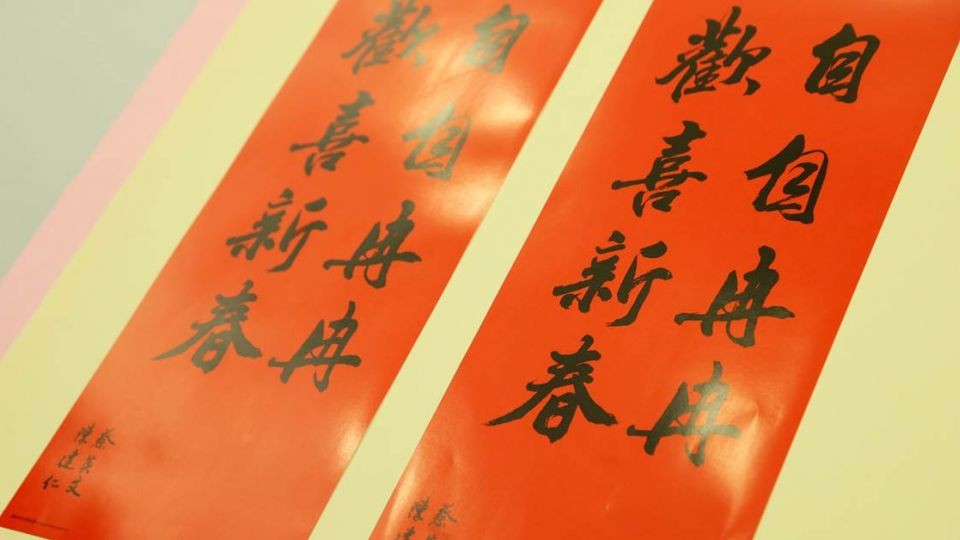 自自冉冉
歡喜新春
蔡英文
陳建仁
自自冉冉
歡喜新春
蔡英
陳建